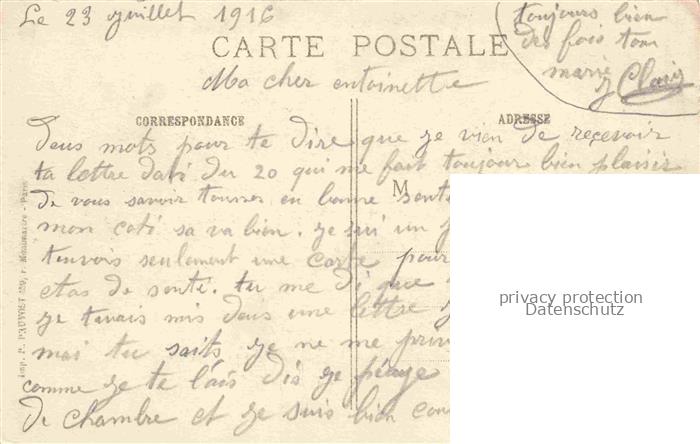 Le 23 juillet 1916
CARTE POSTALE
toujours bien
des fois ton
marie
J Clair
Ma cher entoinette
CORRESPONDANCE
ADRESSE
Deus mots pour te dire que je vien de reçevoir
ta lettre daté du 20 qui me fait toujour bien plaisir
de vous savoir tousses en bonne senté
M
mon coté sa va bien. je sui un
tenvois seulement une carte pour
etas de senté. tu me di que
je tavais mis dans une lettre
mai tu saits je ne me
comme je te l'ais dis je
de chambre et je suis bien
Imp. P. PAUVERT
r. Montmartre - Paris
privacy protection
Datenschutz